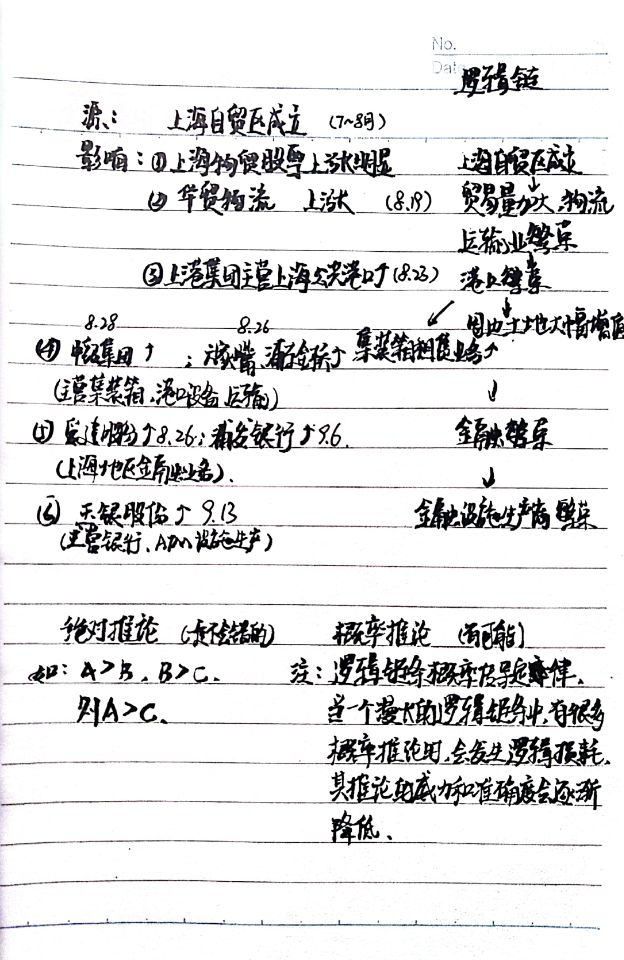 No.
Date
逻辑链
源: 上海自贸区成立 (7~8月)
影响: ① 上海物贸股票上涨明显 上海自贸区成立
② 华贸物流 上涨 (8.19) 贸易量加大,物流
运输业繁荣
③ 上港集团主营上海公共港口↑(8.23) 港口繁荣
周边土地大幅增值
8.28 8.26
④ 中集集团↑ ; 陆家嘴、浦东金桥↑ 集装箱租赁业务↑
(主营集装箱、港口设备 运输)
⑤ 爱建股份↑8.26; 浦发银行↑9.6. 金融繁荣
(上海地区金融业务).
⑥ 天银股份↑ 9.13 金融设施生产商繁荣
(主营银行、ATM设施生产)
绝对推论 (是不会错的) 概率推论 (有可能)
如: A>B, B>C. 注: 逻辑链条概率传导定律.
则A>C. 当一个漫长的逻辑链条中,有很多
概率推论时,会发生逻辑损耗.
其推论的威力和准确度会逐渐
降低.